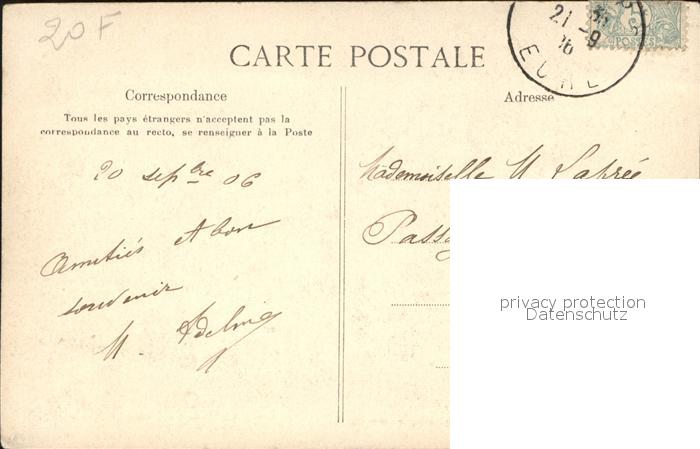 20 F
CARTE POSTALE
21 -9
06
EURE
POSTES
Correspondance
Tous les pays étrangers n'acceptent pas la
correspondance au recto, se renseigner à la Poste
20 sep bre 06
Amitiés et bon
souvenir
M.
Adresse
Mademoiselle M
Passy
privacy protection
Datenschutz